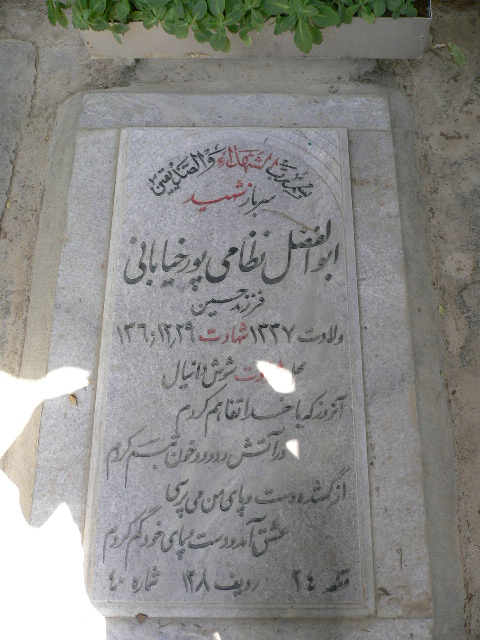 بسم رب الشهداء والصدیقین
سرباز شهید
ابوالفضل نظامی پورخیابانی
فرزند حسین
ولادت ۱۳۳۷ شهادت ۱۳۶۰/۱۲/۲۹
محل شهادت شوش دانیال
آنروز که با خدا تفاهم کردم
در آتش و دود و خون تبسم کردم
از گمشده دست و پای من می پرسی
عشق آمد و دست و پای خود گم کردم
قطعه ۲۴ ردیف ۱۲۸ شماره ۴۰